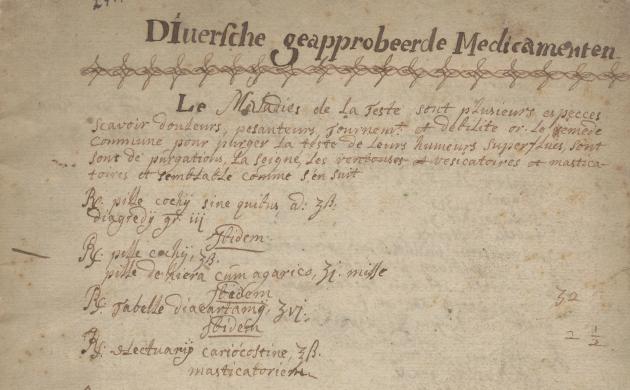 Diuersche geapprobeerde Medicamenten
Le Maladies de la Teste sont plusieurs especces
scavoir douleurs, pesanteurs, Tournem.t et debilite or le remeде
Commune pour purger la teste de leurs humeurs superflues, sont
sont de purgations, la seigne, les ventouses et vesicatoires et mastica-
toires et semblable comme s'en suit
℞. pille cochij sine quibus, a: ʒß.
diagredij gr. iij
Ibidem
℞. pille cochij, ʒß.
pille de hiera cum agarico, ʒj. misse
Ibidem
℞. Tabelle diacartamij, ʒvj.
Ibidem
℞. electuarij cariocostine, ʒß.
masticatoriem
32
2 1/2